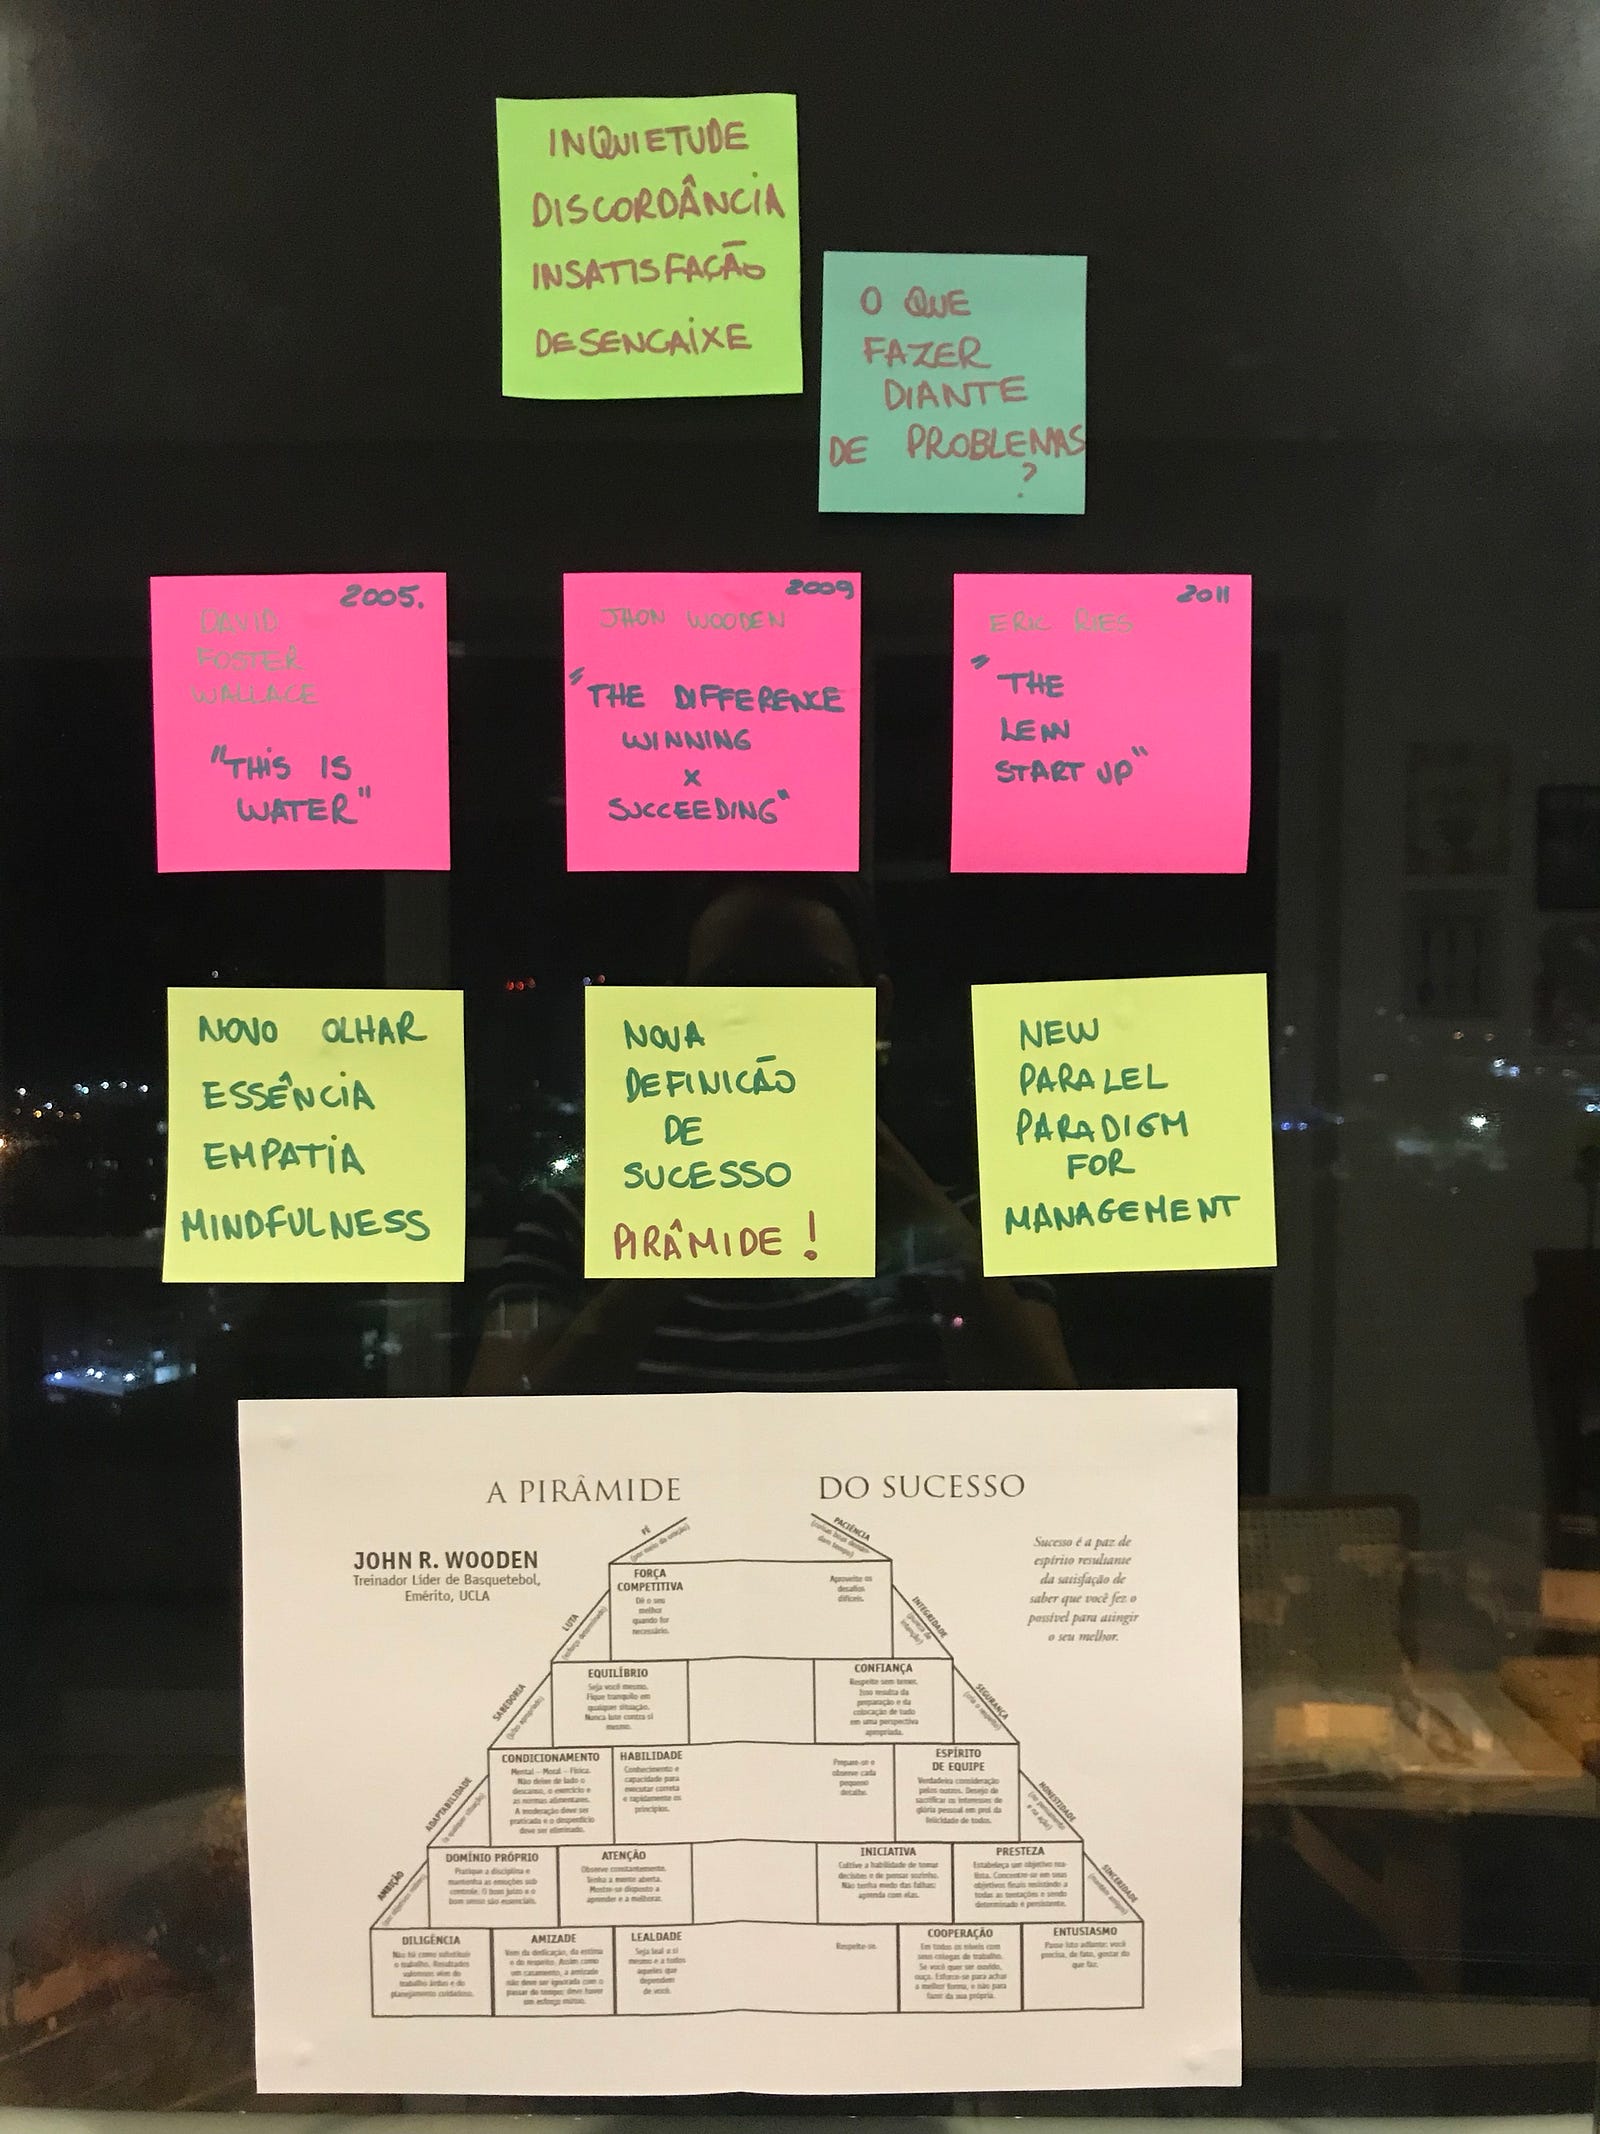 INQUIETUDE
DISCORDÂNCIA
INSATISFAÇÃO
DESENCAIXE
O QUE
FAZER
DIANTE
DE PROBLEMAS
?
2005.
DAVID
FOSTER
WALLACE
"THIS IS
WATER"
2009
JHON WOODEN
"THE DIFFERENCE
WINNING
X
SUCCEEDING"
2011
ERIC RIES
"THE
LEAN
START UP"
NOVO OLHAR
ESSÊNCIA
EMPATIA
MINDFULNESS
NOVA
DEFINICÃO
DE
SUCESSO
PIRÂMIDE!
NEW
PARALEL
PARADIGM
FOR
MANAGEMENT
A PIRÂMIDE DO SUCESSO
JOHN R. WOODEN
Treinador Líder de Basquetebol,
Emérito, UCLA
Sucesso é a paz de
espírito resultante
da satisfação de
saber que você fez o
possível para atingir
o seu melhor.
FÉ
PACIÊNCIA
(coisas boas demandam tempo)
LUTA
(esforço determinado)
INTEGRIDADE
(pureza de
intenção)
SABEDORIA
SEGURANÇA
(cria o respeito)
ADAPTABILIDADE
(a qualquer situação)
HONESTIDADE
(no pensamento
e na ação)
AMBIÇÃO
SINCERIDADE
(mantém amigos)
FORÇA
COMPETITIVA
Dê o seu
melhor
quando for
necessário.
Aproveite os
desafios
difíceis.
EQUILÍBRIO
Seja você mesmo.
Fique tranquilo em
qualquer situação.
Nunca lute contra si
mesmo.
CONFIANÇA
Respeite sem temer.
Isso resulta da
preparação e da
colocação de tudo
em uma perspectiva
apropriada.
CONDICIONAMENTO
Mental – Moral – Física.
Não deixe de lado o
descanso, o exercício e
as normas alimentares.
A moderação deve ser
praticada e o desperdício
deve ser eliminado.
HABILIDADE
Conhecimento e
capacidade para
executar correta
e rapidamente os
princípios.
Prepare-se e
observe cada
pequeno
detalhe.
ESPÍRITO
DE EQUIPE
Verdadeira consideração
pelos outros. Desejo de
sacrificar os interesses de
glória pessoal em prol da
felicidade de todos.
DOMÍNIO PRÓPRIO
Pratique a disciplina e
mantenha as emoções sob
controle. O bom juízo e o
bom senso são essenciais.
ATENÇÃO
Observe constantemente.
Tenha a mente aberta.
Mostre-se disposto a
aprender e a melhorar.
INICIATIVA
Cultive a habilidade de tomar
decisões e de pensar sozinho.
Não tenha medo das falhas;
aprenda com elas.
PRESTEZA
Estabeleça um objetivo realista.
Concentre-se em seus
objetivos finais resistindo a
todas as tentações e sendo
determinado e persistente.
DILIGÊNCIA
Não há como substituir
o trabalho. Resultados
valorosos vêm do
trabalho árduo e do
planejamento cuidadoso.
AMIZADE
Vem da dedicação, da estima
e do respeito. Assim como
um casamento, a amizade
não deve ser ignorada com o
passar do tempo; deve haver
um esforço mútuo.
LEALDADE
Seja leal a si
mesmo e a todos
aqueles que
dependem
de você.
Respeite-se.
COOPERAÇÃO
Em todos os níveis com
seus colegas de trabalho.
Se você quer ser ouvido,
ouça. Esforce-se para achar
a melhor forma, e não para
fazer da sua própria.
ENTUSIASMO
Passe isto adiante; você
precisa, de fato, gostar do
que faz.